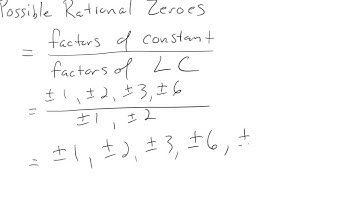 Possible Rational Zeroes
= factors of constant
factors of LC
= ±1, ±2, ±3, ±6
±1, ±2
= ±1, ±2, ±3, ±6, ±